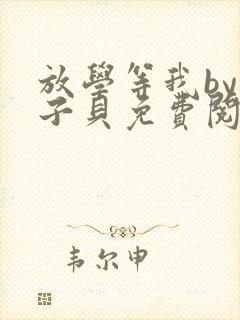 放學等我by
子貝免費閱
韦尔申